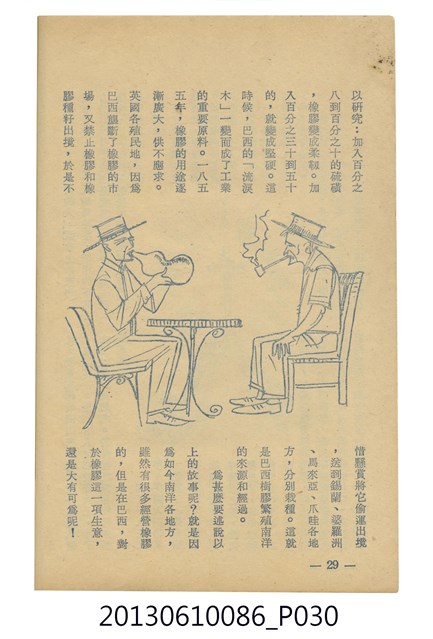 以研究:加入百分之
八到百分之十的硫磺
,橡膠變成柔韌。加
入百分之三十到五十
的,就變成堅硬。這
時候,巴西的「流淚
木」一變而成了工業
的重要原料。一八五
五年,橡膠的用途逐
漸廣大,供不應求。
英國各殖民地,因爲
巴西壟斷了橡膠的市
場,又禁止橡膠和橡
膠種籽出境,於是不
惜懸賞將它偷運出境
,送到錫蘭、婆羅洲
、馬來亞、爪哇各地
方,分別栽種。這就
是巴西樹膠繁殖南洋
的來源和經過。
爲甚麼要述說以
上的故事呢?就是因
爲如今南洋各地方,
雖然有很多經營橡膠
的,但是在巴西,對
於橡膠這一項生意,
還是大有可爲呢!
— 29 —
20130610086_P030